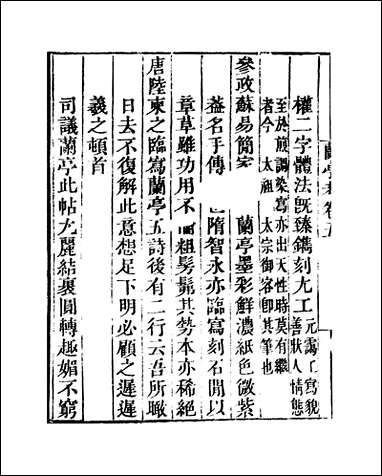 蘭亭考卷五
權二字體法既臻鐫刻尤工
元靄工寫貌
善狀人情態
至於煎調染寫亦出天性時莫有繼
者今 太祖 太宗御容卽其筆也
參政蘇易簡 蘭亭墨彩鮮濃紙色微紫
葢名手傳 隋智永亦臨寫刻石閒以
章草雖功用不 粗髣髴其勢本亦稀絕
唐陸柬之臨寫蘭亭五詩後有二行云吾所瞰
日去不復解此意想足下明必顧之遲遲
羲之頓首
司議蘭亭此帖尤麗結裹圓轉趣媚不窮